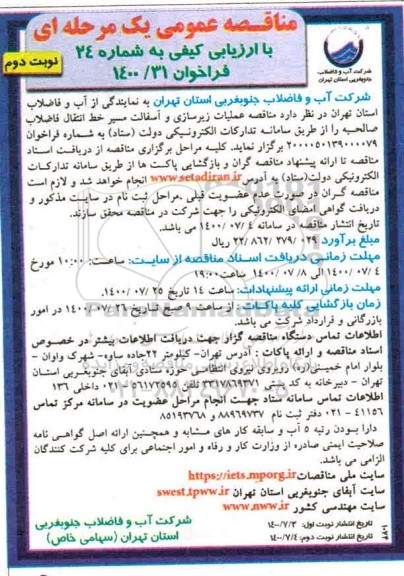 مناقصه عمومی یک مرحله ای
با ارزیابی کیفی به شماره ۲۴
فراخوان ۱۴۰۰/۳۱
نوبت دوم
شرکت آب و فاضلاب
جنوبغربی استان تهران
شرکت آب و فاضلاب جنوبغربی استان تهران به نمایندگی از آب و فاضلاب
استان تهران در نظر دارد مناقصه عملیات زیرسازی و آسفالت مسیر خط انتقال فاضلاب
صالحیه را از طریق سامانه تدارکات الکترونیکی دولت (ستاد) به شماره فراخوان
۲۰۰۰۰۵۰۱۳۹۰۰۰۰۷۹ برگزار نماید. کلیه مراحل برگزاری مناقصه از دریافت اسناد
مناقصه تا ارائه پیشنهاد مناقصه گران و بازگشایی پاکت ها از طریق سامانه تدارکات
الکترونیکی دولت(ستاد) به آدرس www.setadiran.ir انجام خواهد شد و لازم است
مناقصه گران در صورت عدم عضویت قبلی ،مراحل ثبت نام در سایت مذکور و
دریافت گواهی امضای الکترونیکی را جهت شرکت در مناقصه محقق سازند.
تاریخ انتشار مناقصه در سامانه ۱۴۰۰/۰۷/۰۴ می باشد.
مبلغ برآورد ۲۲/۸۶۲/۲۷۹/۰۲۹ ریال
مهلت زمانی دریافت اسناد مناقصه از سایت: ساعت: ۱۰:۰۰ مورخ
۱۴۰۰/۰۷/۰۴ الی ۱۴۰۰/۰۷/۰۸ ساعت ۱۹:۰۰
مهلت زمانی ارائه پیشنهادات: ساعت ۱۴ تاریخ ۱۴۰۰/۰۷/۲۵
زمان بازگشایی کلیه پاکات : از ساعت ۹ صبح تاریخ ۱۴۰۰/۰۷/۲۶ در امور
بازرگانی و قرارداد شرکت می باشد.
اطلاعات تماس دستگاه مناقصه گزار جهت دریافت اطلاعات بیشتر در خصوص
اسناد مناقصه و ارائه پاکات : آدرس تهران- کیلومتر ۲۲جاده ساوه- شهرک واوان -
بلوار امام خمینی(ره) روبروی نیروی انتظامی حوزه ستادی آبفای جنوبغربی استان
تهران - دبیرخانه به کد پستی ۳۳۱۷۷۶۹۳۷۱ تلفن ۵۶۱۷۲۵۹۵ -۰۲۱ داخلی ۱۳۶
اطلاعات تماس سامانه ستاد جهت انجام مراحل عضویت در سامانه مرکز تماس
۴۱۱۵۶ - ۰۲۱ دفتر ثبت نام ۸۸۹۶۹۷۳۷ و ۸۵۱۹۳۷۶۸
دارا بودن رتبه ۵ آب و سابقه کار های مشابه و همچنین ارائه اصل گواهی نامه
صلاحیت ایمنی صادره از وزارت کار و رفاه و امور اجتماعی برای کلیه شرکت کنندگان
الزامی می باشد.
سایت ملی مناقصات https://iets.mporg.ir
سایت آبفای جنوبغربی استان تهران swest.tpww.ir
سایت مهندسی کشور www.nww.ir
تاریخ انتشار نوبت اول: ۱۴۰۰/۷/۳
تاریخ انتشار نوبت دوم: ۱۴۰۰/۷/۴
شرکت آب و فاضلاب جنوبغربی
استان تهران (سهامی خاص)